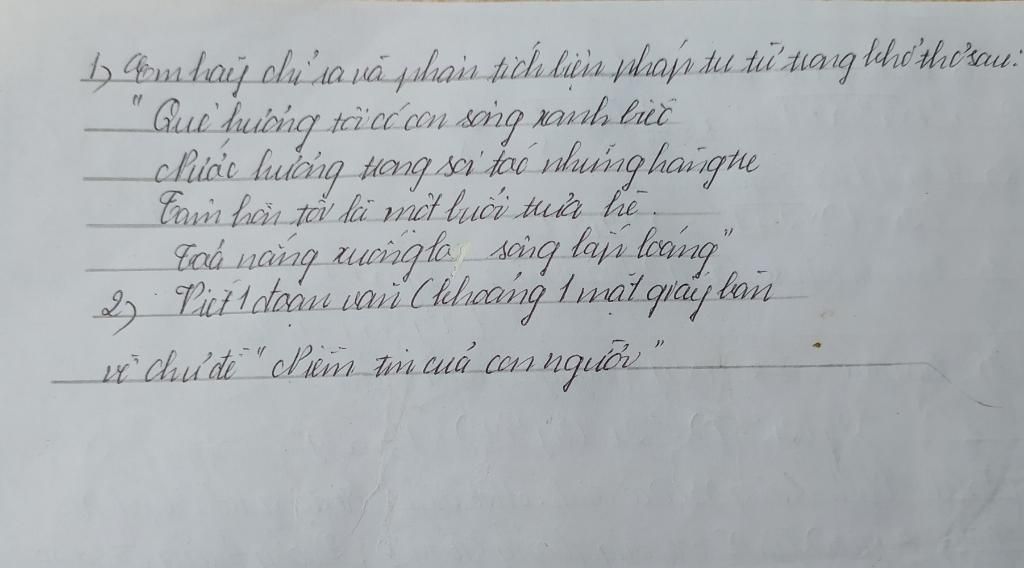 1) Em hãy chỉ ra và phân tích biện pháp tu từ trong khổ thơ sau:
"Quê hương tôi có con sông xanh biếc
Nước hương trong soi tóc những hàng tre
Tâm hồn tôi là một buổi trưa hè.
Toả nắng xuống lò sông lấp loáng"
2) Viết 1 đoạn văn (khoảng 1 mặt giấy bàn
về chủ đề "Niềm tin của con người"